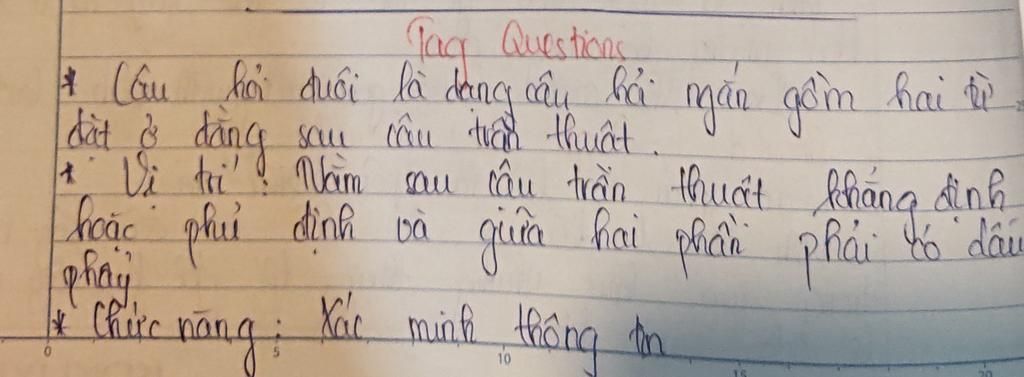 Tag Questions
* Câu hỏi đuôi là dạng câu hỏi ngắn gồm hai từ
đặt ở đằng sau câu trần thuật.
* Vị trí: Nằm sau câu trần thuật khẳng định
hoặc phủ định và giữa hai phần phải có dấu
phẩy
* Chức năng: Xác minh thông tin
0 5 10 15 20